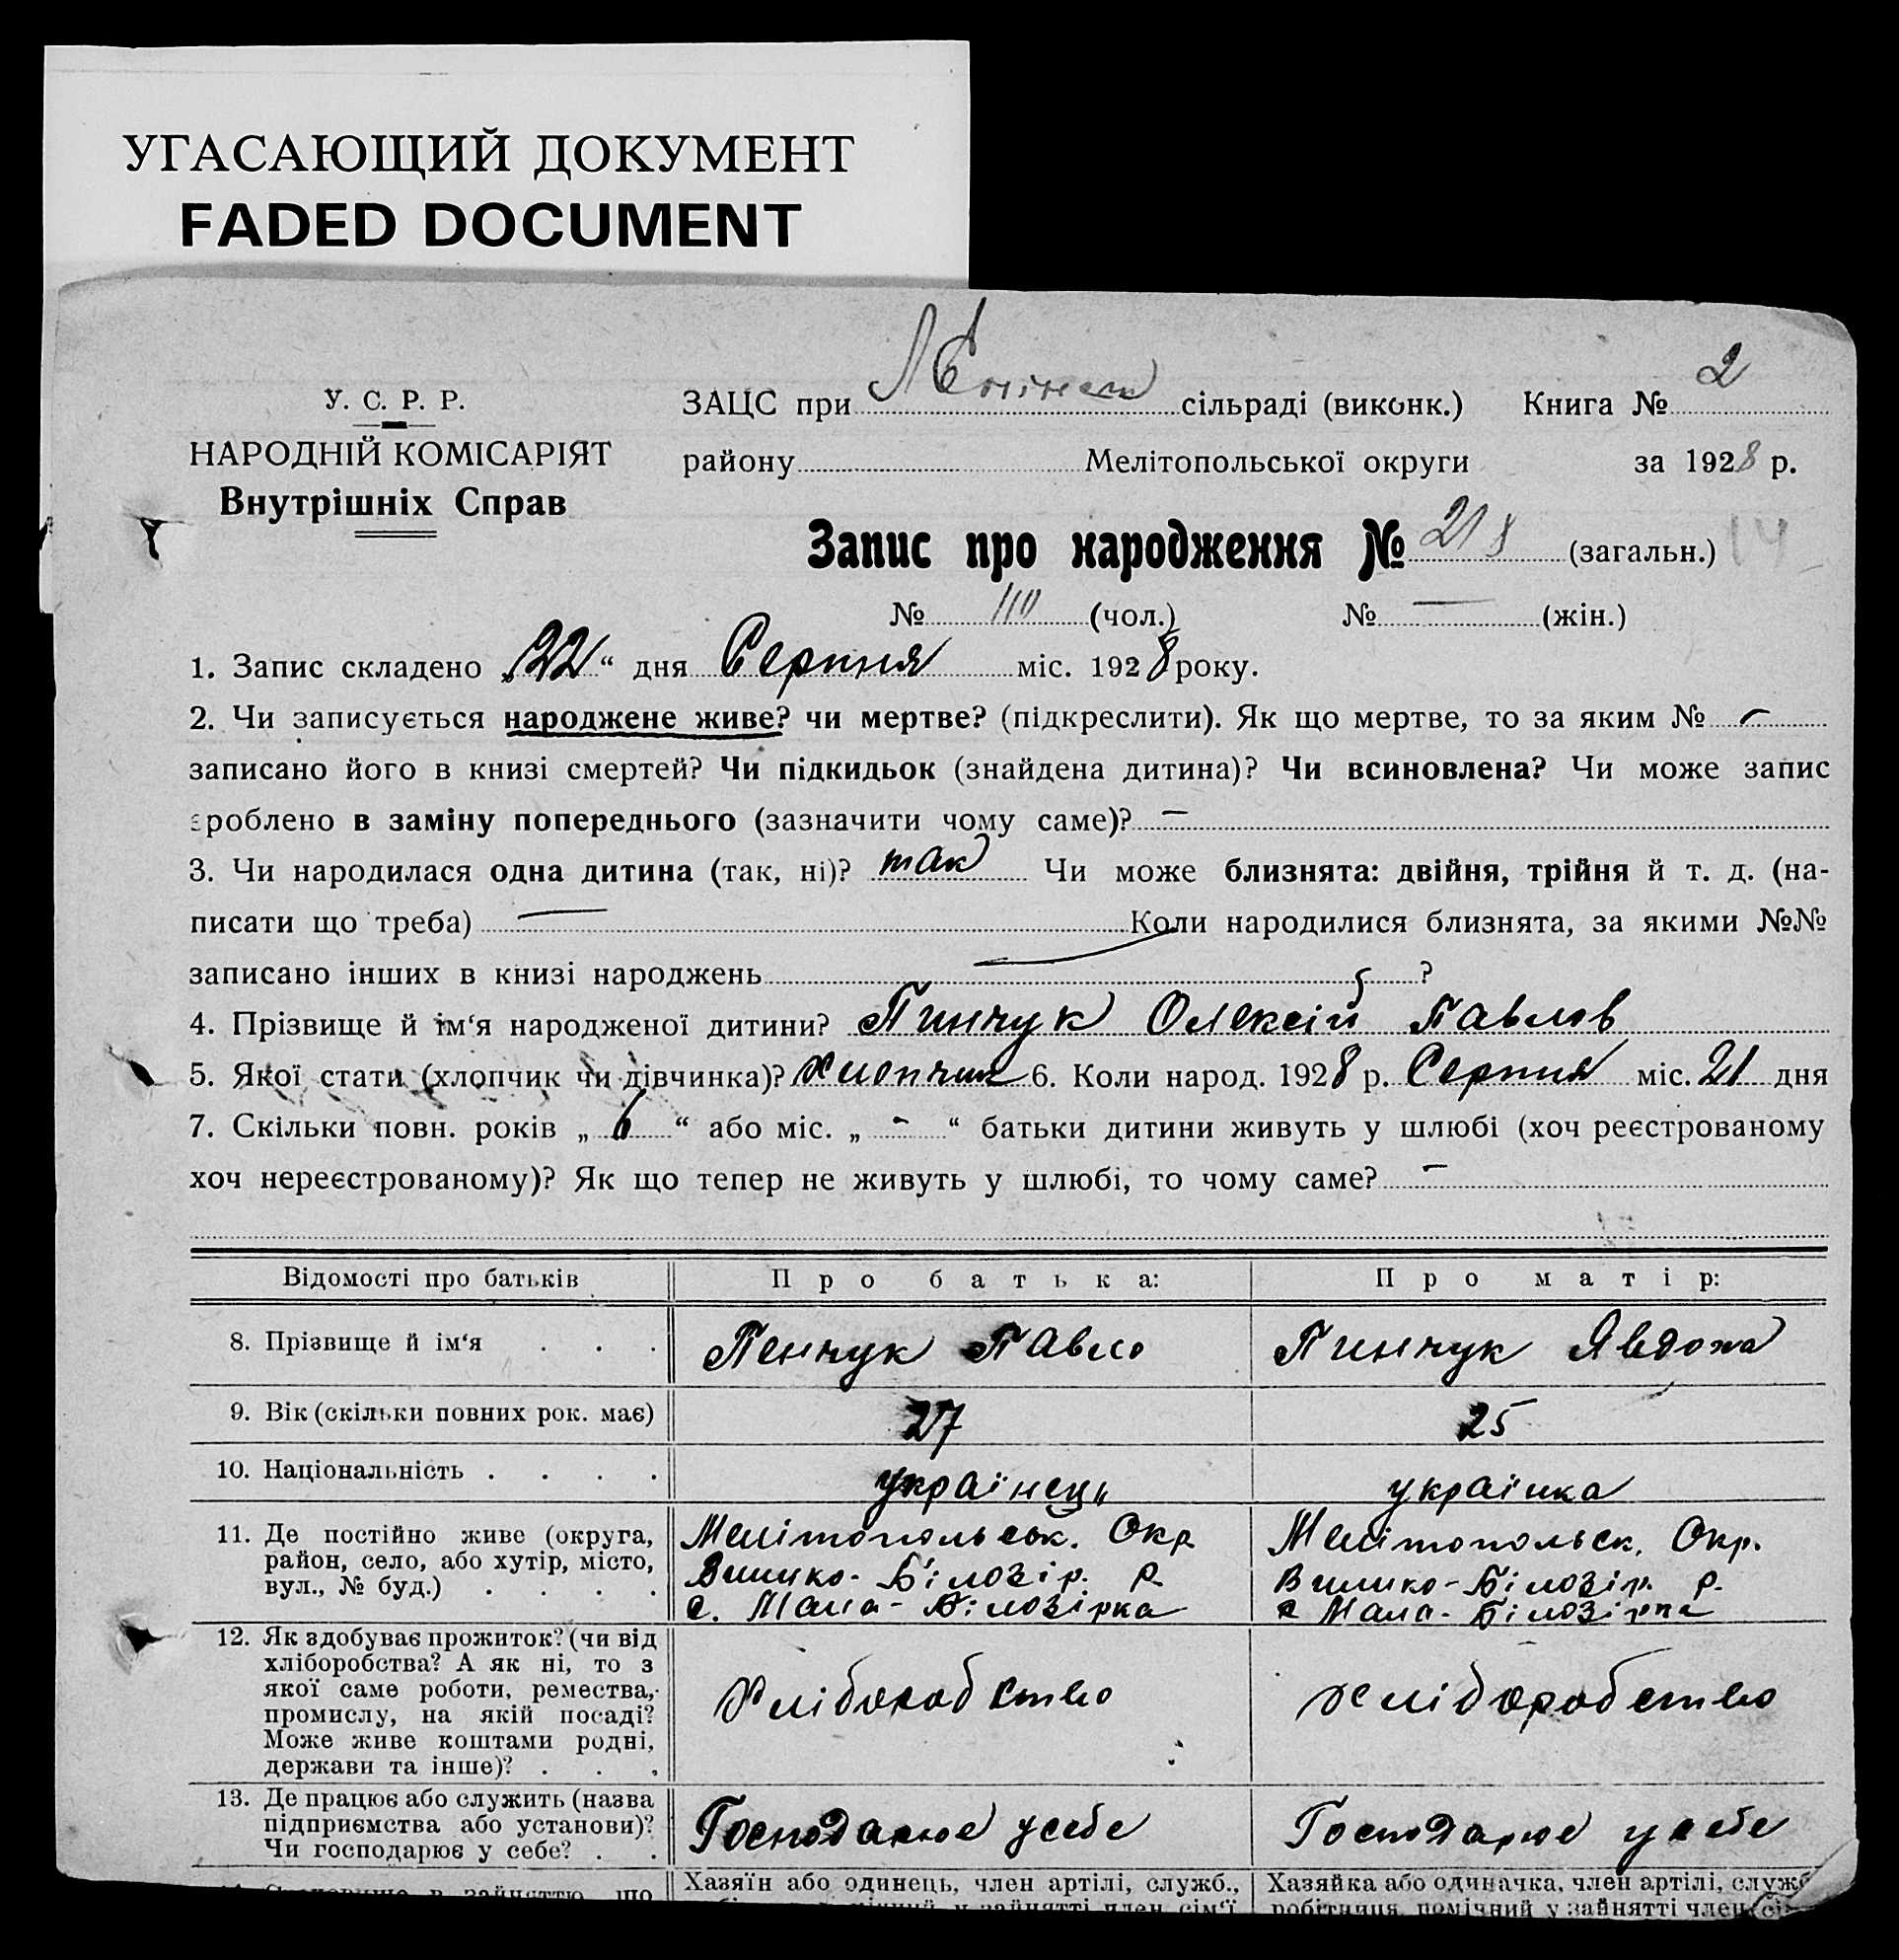 УГАСАЮЩИЙ ДОКУМЕНТ
FADED DOCUMENT
У. С. Р. Р.
НАРОДНІЙ КОМІСАРІЯТ
Внутрішніх Справ
ЗАЦС при сільраді (виконк.) Книга № 2
району Мелітопольської округи за 1928 р.
Запис про народження № 218 (загальн.) 14
№ 110 (чол.) № — (жін.)
1. Запис складено „22“ дня Серпня міс. 1928 року.
2. Чи записується народжене живе? чи мертве? (підкреслити). Як що мертве, то за яким № —
записано його в книзі смертей? Чи підкидьок (знайдена дитина)? Чи всиновлена? Чи може запис
зроблено в заміну попереднього (зазначити чому саме)? —
3. Чи народилася одна дитина (так, ні)? так Чи може близнята: двійня, трійня й т. д. (на-
писати що треба) — Коли народилися близнята, за якими №№
записано інших в книзі народжень — ?
4. Прізвище й ім‘я народженої дитини? Пинчук Олексій Павлов
5. Якої стати (хлопчик чи дівчинка)? хлопчик 6. Коли народ. 1928 р. Серпня міс. 21 дня
7. Скільки повн. років „ 6 “ або міс. „ - “ батьки дитини живуть у шлюбі (хоч реєстрованому
хоч нереєстрованому)? Як що тепер не живуть у шлюбі, то чому саме? —
Відомості про батьків Про батька: Про матір:
8. Прізвище й ім‘я . . . Пенчук Павло Пинчук Явдоха
9. Вік (скільки повних рок. має) 27 25
10. Національність . . . . українець українка
11. Де постійно живе (округа,
район, село, або хутір, місто,
вул., № буд.) . . . .
Мелітопольськ. Окр
Вилико-Білозір. р.
с. Мала-Білозірка
Мелітопольск. Окр.
Вилико-Білозір. р.
с Мала-Білозірка
12. Як здобуває прожиток? (чи від
хліборобства? А як ні, то з
якої саме роботи, ремества,
промислу, на якій посаді?
Може живе коштами родні,
держави та інше)? . . .
хліборобство хліборобство
13. Де працює або служить (назва
підприємства або установи)?
Чи господарює у себе? . .
Господарює у себе Господарює у себе
Хазяїн або одинець, член артілі, служб., Хазяйка або одиначка, член артілі, служб
у зайнятті член сім‘ї робітниця, помічний у зайнятті член сі-